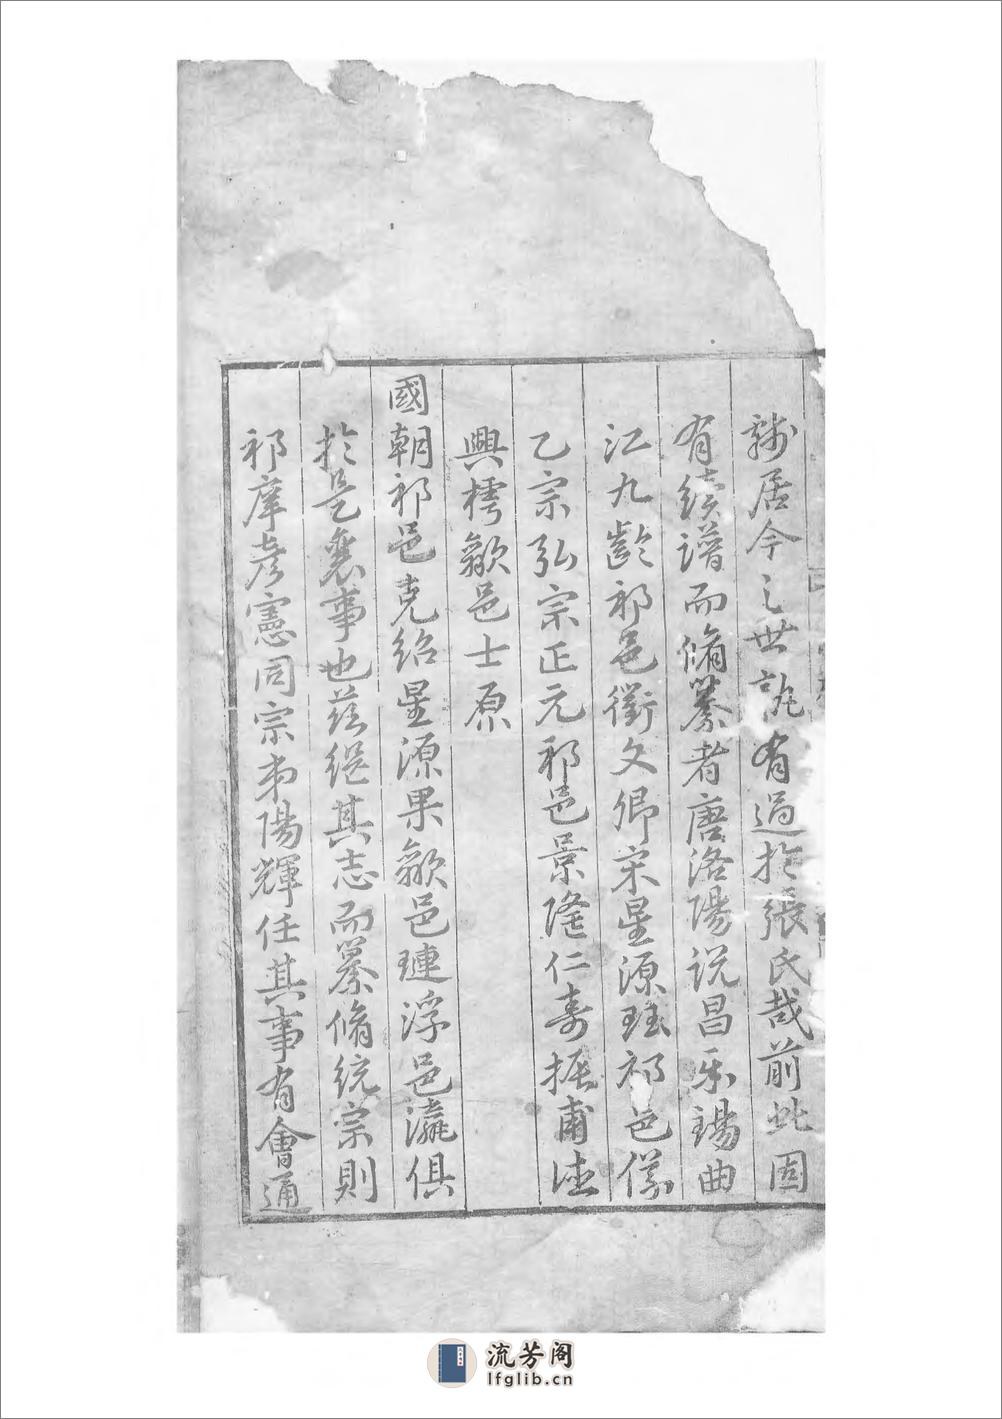 居今之世孰有過於張氏哉前此固
有續譜而脩纂者唐洛陽說昌樂錫曲
江九齡祁邑衢文卿宋星源珏祁邑儀
乙宗弘宗正元祁邑景隆仁壽振甫德
興樗歙邑士原
國朝祁邑克紹星源果歙邑璉浮邑瀧俱
於是襄事也茲緦其志而纂脩統宗則
祁庠彥憲同宗弟陽輝任其事有會通
流芳阁
lfglib.cn